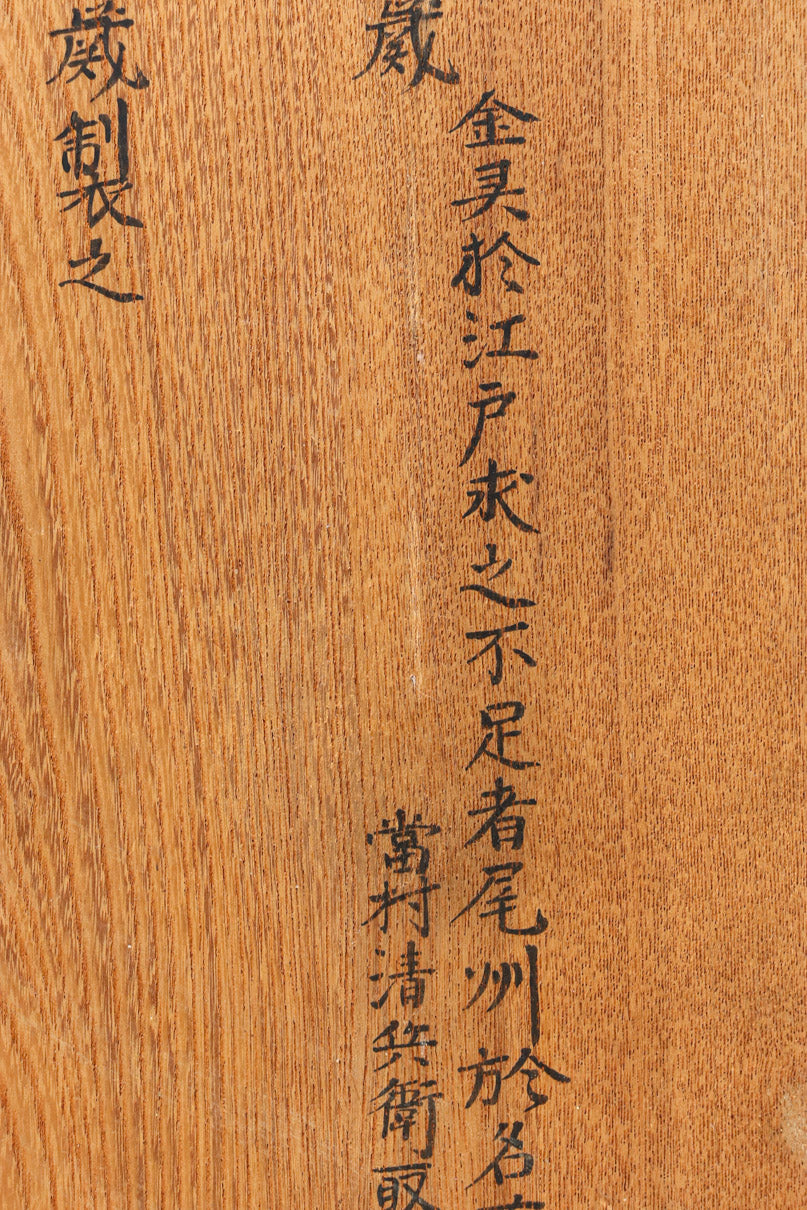 金具於江戸求之不足者尾州於名
歳
當村清兵衛取
歳製之